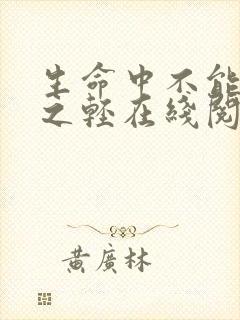 生命中不能
之輕在綫閱
黃廣林